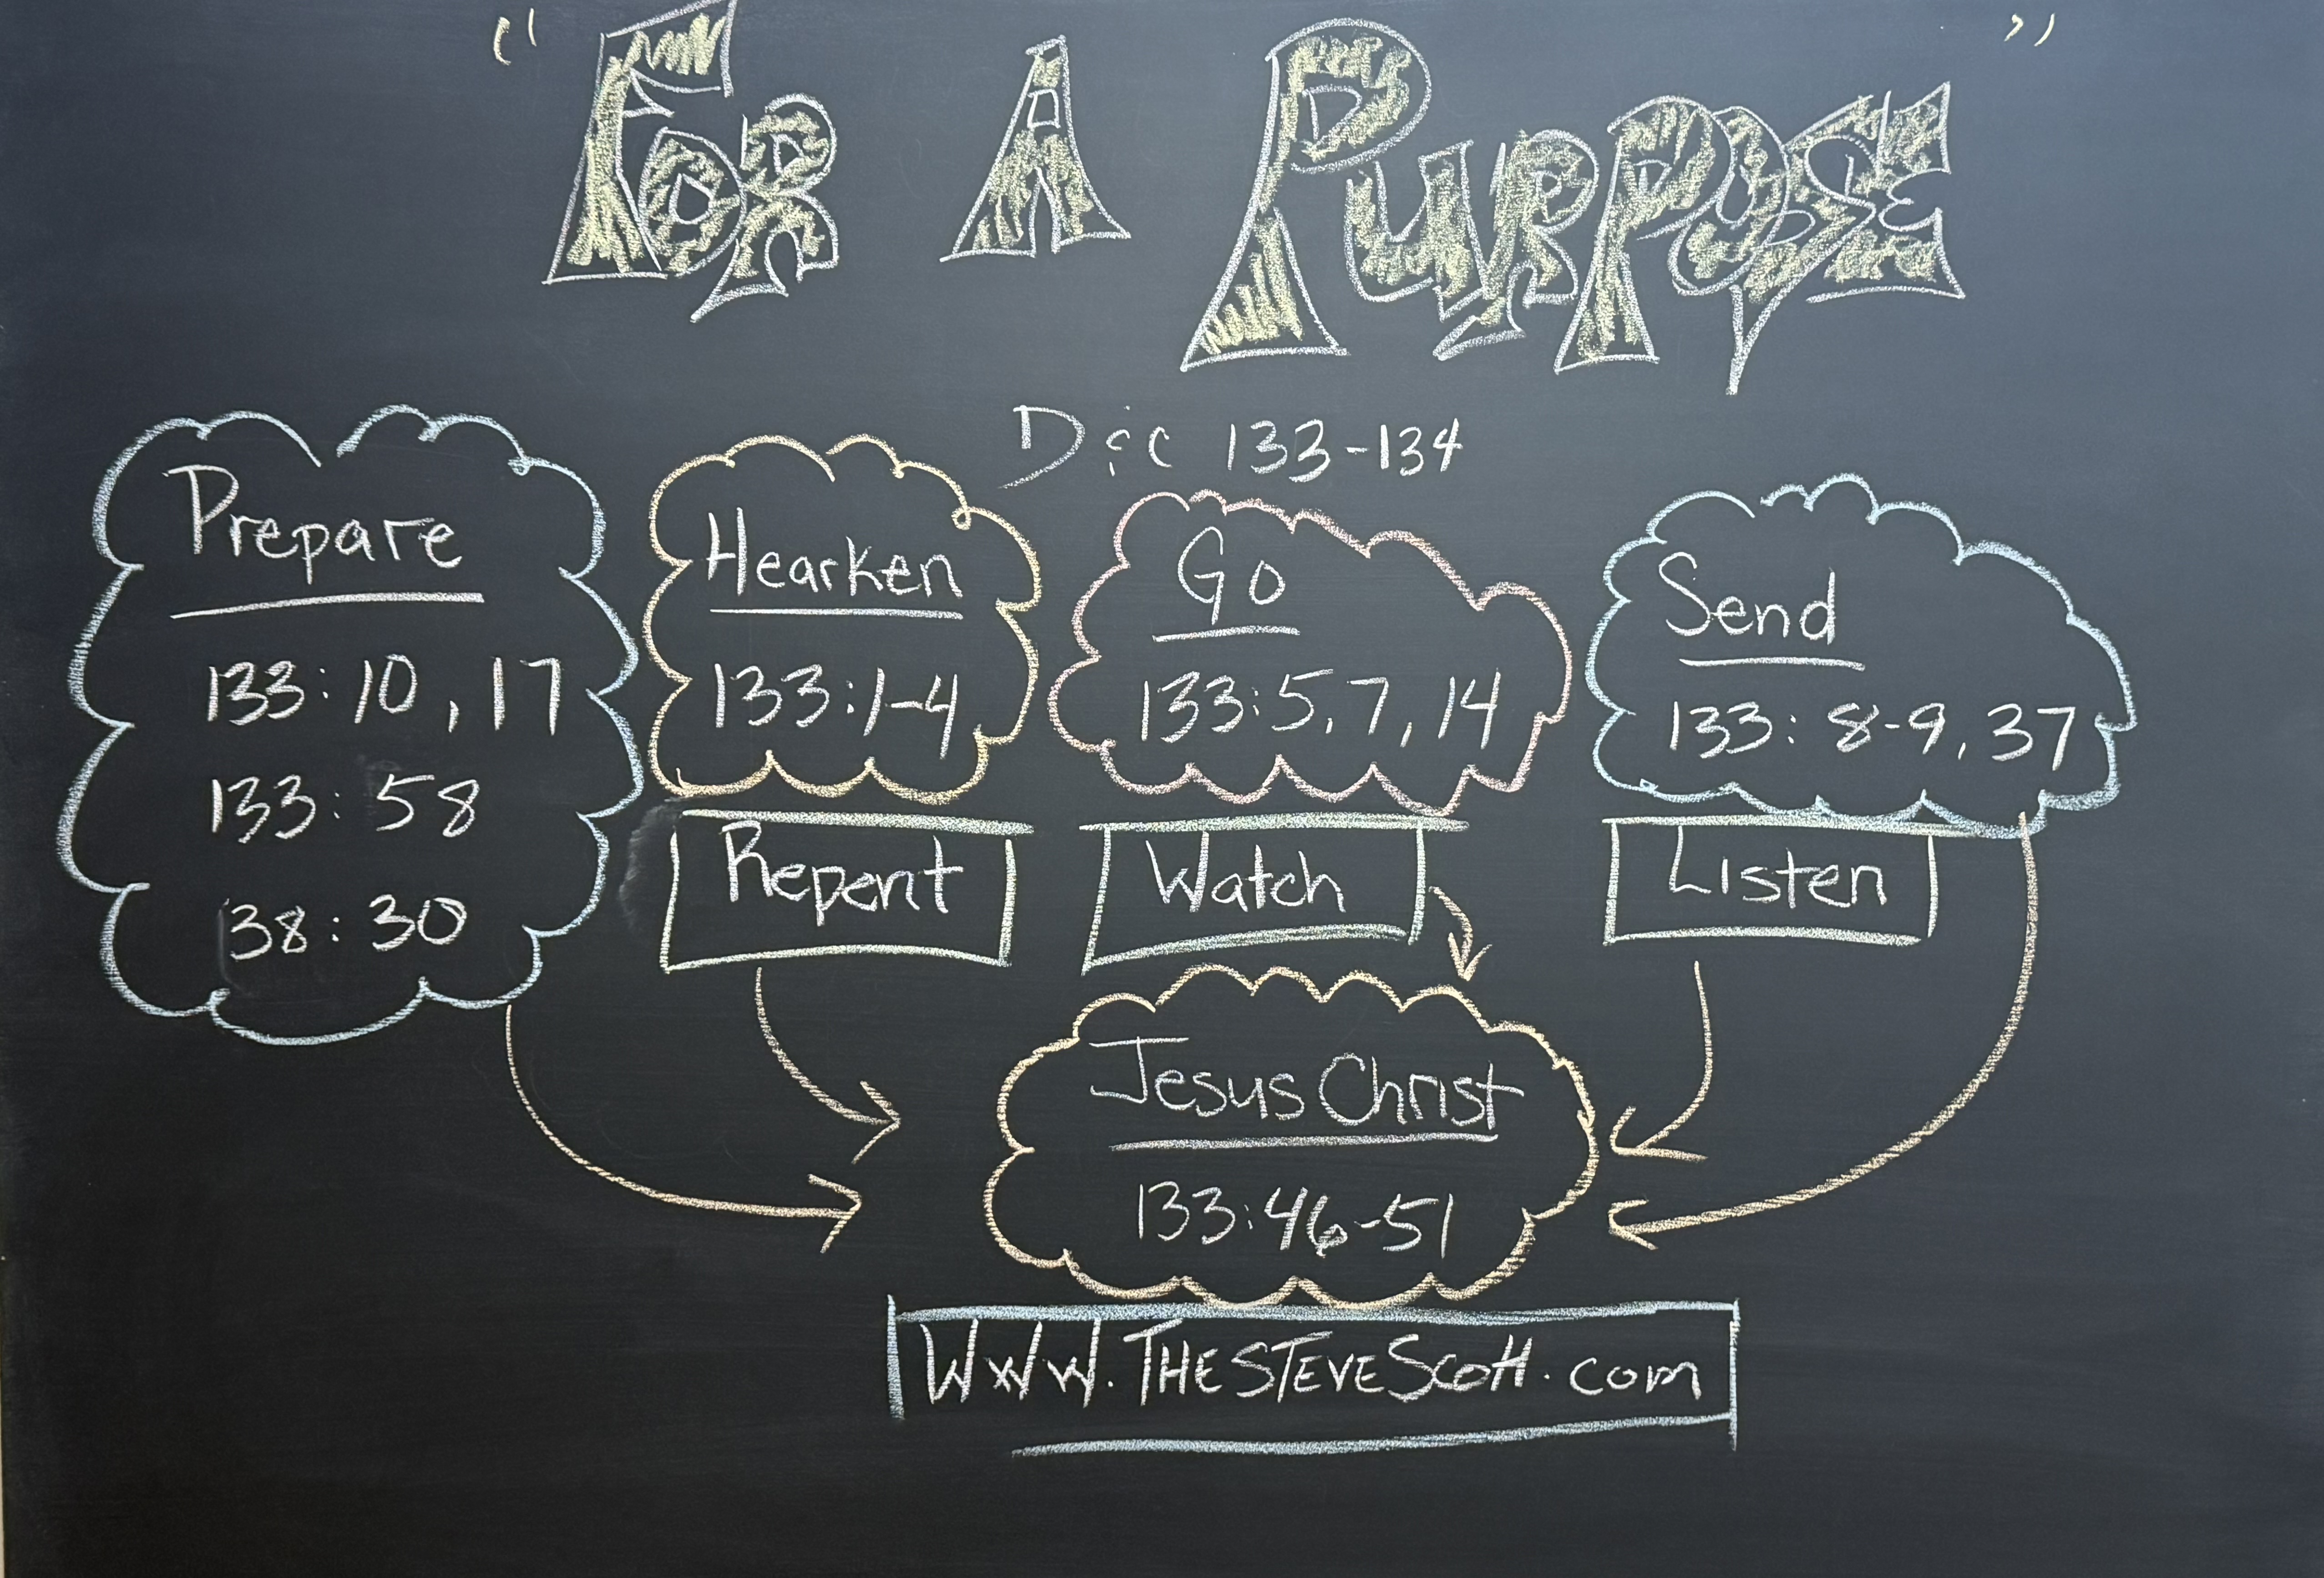 "For A Purpose"
D&C 133-134
Prepare
133:10, 17
133:58
38:30
Hearken
133:1-4
Go
133:5,7,14
Send
133:8-9,37
Repent
Watch
Listen
Jesus Christ
133:46-51
WWW.THESTEVESCOTT.com